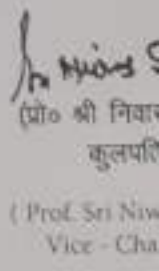 (प्रो० श्री निवास
कुलपति
( Prof. Sri Niw
Vice - Cha